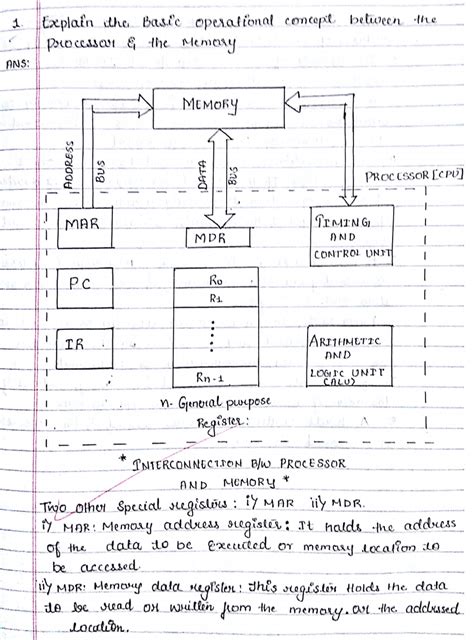 1 Explain the Basic operational concept between the
processor & the Memory
ANS:
MEMORY
ADDRESS
BUS
DATA
BUS
PROCESSOR [CPU]
MAR
MDR
TIMING
AND
CONTROL UNIT
PC
R0
R1
IR
ARITHMETIC
AND
LOGIC UNIT
(ALU)
Rn-1
n- General purpose
Register:
* INTERCONNECTION B/W PROCESSOR
AND MEMORY *
Two other Special registers: i) MAR ii) MDR.
i) MAR: Memory address register: It holds the address
of the data to be Executed or memory location to
be accessed.
ii) MDR: Memory data register: This register Holds the data
to be read or written from the memory. or the addressed
location.